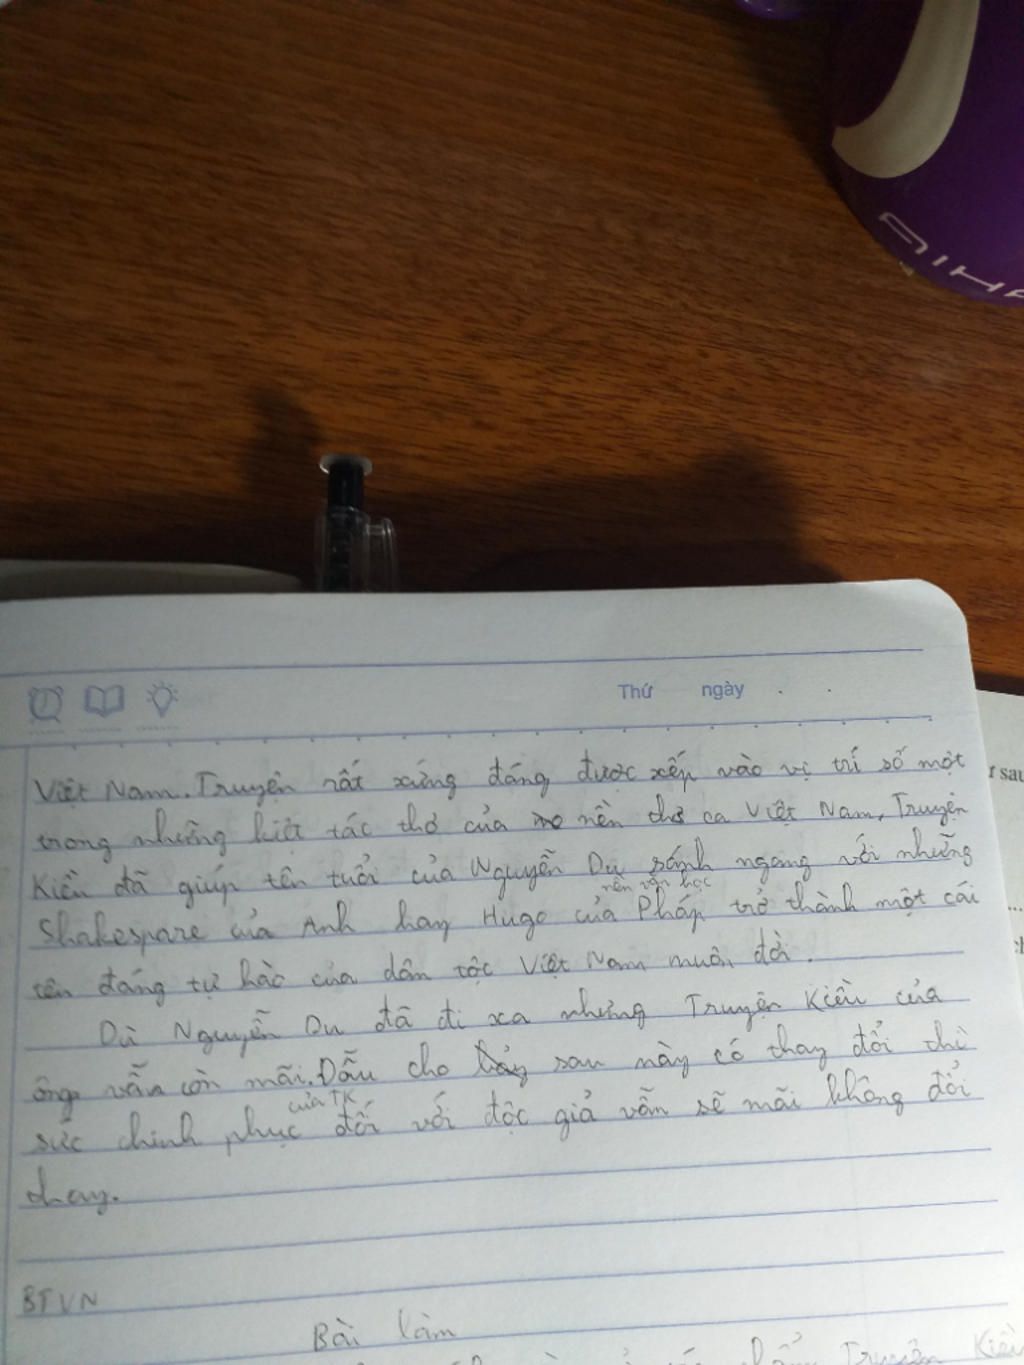 AIHA
Thứ ngày
Việt Nam. Truyện rất xứng đáng được xếp vào vị trí số một
trong những kiệt tác thơ của nền thơ ca Việt Nam, Truyện
Kiều đã giúp tên tuổi của Nguyễn Du sánh ngang với những
nền văn học
Shakespare của Anh hay Hugo của Pháp trở thành một cái
tên đáng tự hào của dân tộc Việt Nam muôn đời.
Dù Nguyễn Du đã đi xa nhưng Truyện Kiều của
ông vẫn còn mãi. Dẫu cho sau này có thay đổi thì
của TK
sức chinh phục đối với độc giả vẫn sẽ mãi không đổi
thay.
BTVN
Bài làm
Truyện Kiều
sau